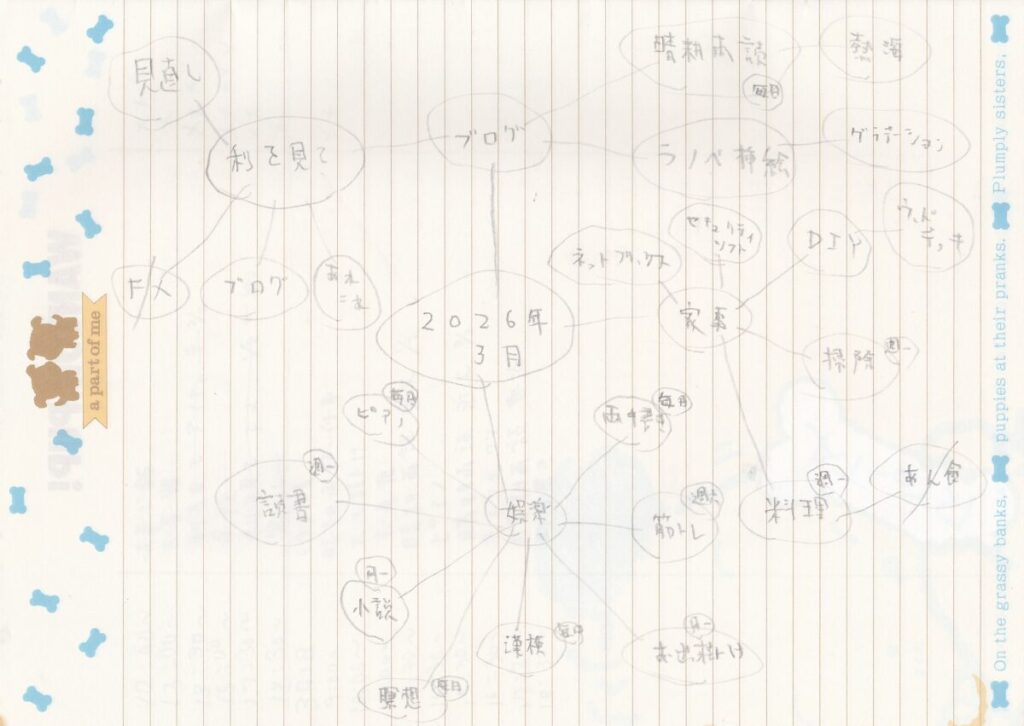 見直し
利を見て
ブログ
晴耕雨読
毎日
熱海
ラノベ挿絵
グラデーション
FX
ブログ
あれ
これ
2026年
3月
ネットプリックス
セキュリティ
ソフト
DIY
ウッド
デッキ
家事
掃除
週一
料理
週一
あん食
娯楽
ピアノ
毎日
毎日
読書
週一
筋トレ
小説
月一
漢検
毎日
瞑想
毎日
お出掛け
月一
a part of me
On the grassy banks, puppies at their pranks. Plumply sisters,